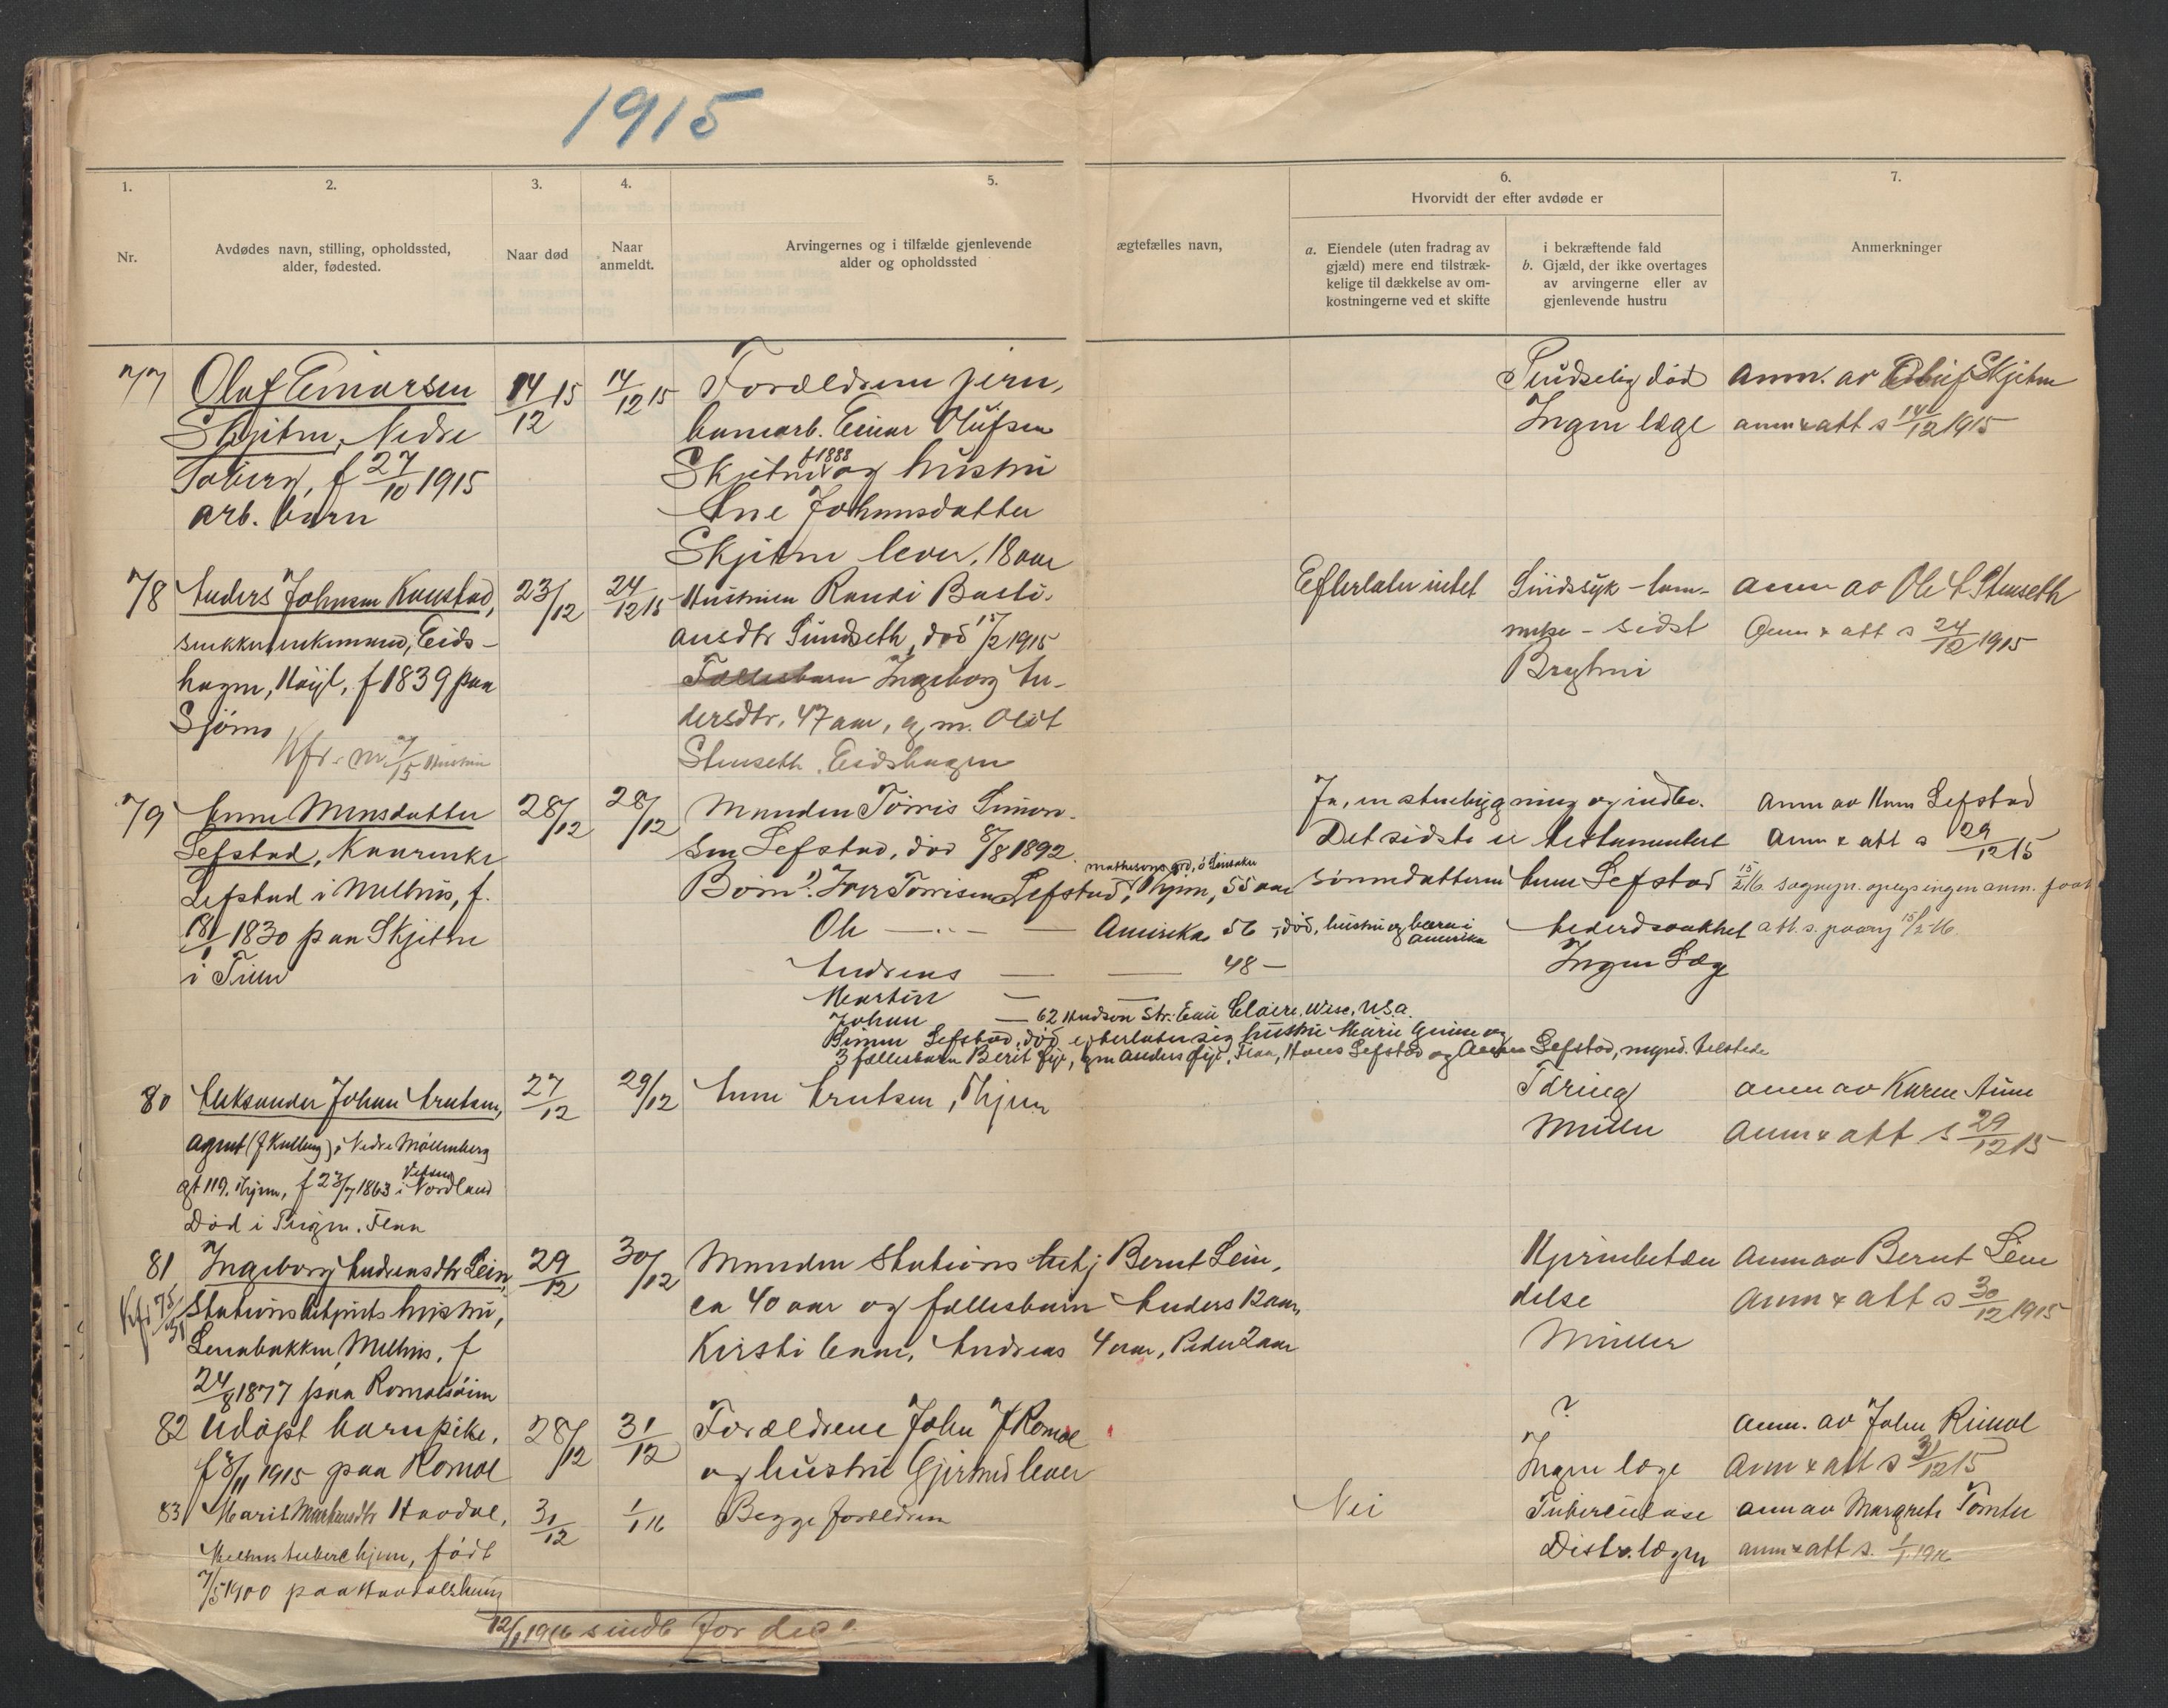 1915
1.
2.
3.
4.
5.
6.
7.
Nr.
Avdødes navn, stilling, opholdssted,
alder, fødested.
Naar død
Naar
anmeldt.
Arvingernes og i tilfælde gjenlevende
alder og opholdssted
ægtefælles navn,
Hvorvidt der efter avdøde er
a. Eiendele (uten fradrag av
gjæld) mere end tilstræk-
kelige til dækkelse av om-
kostningerne ved et skifte
i bekræftende fald
b. Gjæld, der ikke overtages
av arvingerne eller av
gjenlevende hustru
Anmerkninger
77
Olaf Einarsen
Skjetne, Nedre
Søberg, f 27/10 1915
arb. barn
14/12 15
14/12 15
Forældrene jern-
banearb. Einar Olufsen
Skjetne f 1888 og hustru
Ane Johannsdatter
Skjetne lever, 18 aar
Pludselig død
Ingen læge
anm. av Oluf Skjetne
anm & att s 14/12 1915
78
Anders Johnsen Kaustad,
enkemand, Eids-
hagen, Høyl, f 1839 paa
Kfr. nr 7/15 Hustru
23/12
24/12 15
Hustruen Randi Basti-
ansdtr Sundseth, død 15/2 1915
Fællesbarn Ingeborg An-
dersdtr, 47 aar, g. m. Olot
Stenseth, Eidshagen
Efterlater intet
Sindssyk - lam-
melse - sidst
anm av Ole Stenseth
Anm & att s 24/12 1915
79
Anne Monsdatter
Lefstad, Kaarenke
Lefstad i Melhus, f.
18/1 1830 paa Skjetne
i Tiller
28/12
28/12
Manden Torris Simon-
sen Lefstad, død 8/8 1892.
Børn: Iver Torrisen Lefstad, Thjem, 55 aar
Ole — Amerika 56 - død, hustru og barn i
Amerika
Andreas — — 48 -
Martin — —
Johan — 62 Hudson Str: Eau Claire, Wisc, U.S.A.
Simen Lefstad, død efterlater sig hustru Marie og
3 fællesbarn Berit Øye, gm Anders Øye, Flaa, Hans Lefstad og Lefstad, mynd. telstede
Ja, en stuebygning og indbo.
Det sidste er testamentert
sønnedatteren Anne Lefstad
Alderdsvakhet
Ingen Læge
Anm av Lefstad
Anm & att s 29/12 15
15/2 16. sogneprs. oplys ingen anm. før
att. s. paany 15/2 16.
80
Aleksander Johan Arntsen,
agent, Nedre Møllenberg
gt 119. Thjem, f 23/7 1863 i Vefsen Nordland
Død i Flaa
27/12
29/12
Anne Arntsen, Thjem
Tæring
Müller
anm av Karen Aune
Anm & att s 29/12 15
81
Ingeborg Andreasdtr Lein,
Stationsbetjents hustru,
Lenabakken, Melhus, f
24/8 1877 paa Romolsøien
29/12
30/12
Manden Stations betj Bernt Lein,
ca 40 aar og fællesbarn Anders 12 aar,
Kirsti 6 aar, Andreas 4 aar, Peder 2 aar
Hjernebetæn
delse
Müller
Anm av Bernt Lein
Anm & att s 30/12 1915
82
Udøpt barn pike,
f 8/11 1915 paa Romol
28/12
31/12
Forældrene John J Romol
og hustru Gjertrud lever
?
Ingen læge
anm. av John Rimol
Anm & att s 31/12 15
83
Marit Havdal,
Melhus tuberc hjem, født
7/5 1900 paa Havdalshus
31/12
1/1 16
Begge forældre
Nei
Tuberculose
Distr. lægen
anm av Margrete Tomter
anm & att s. 1/1 1916
12/1 1916 sendt